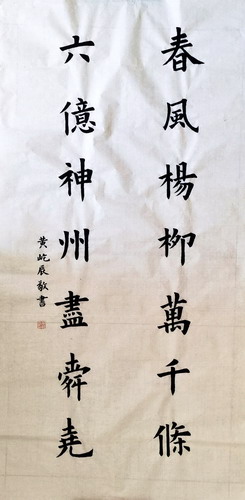 春風楊柳萬千條
六億神州盡舜堯
黃屹辰敬書